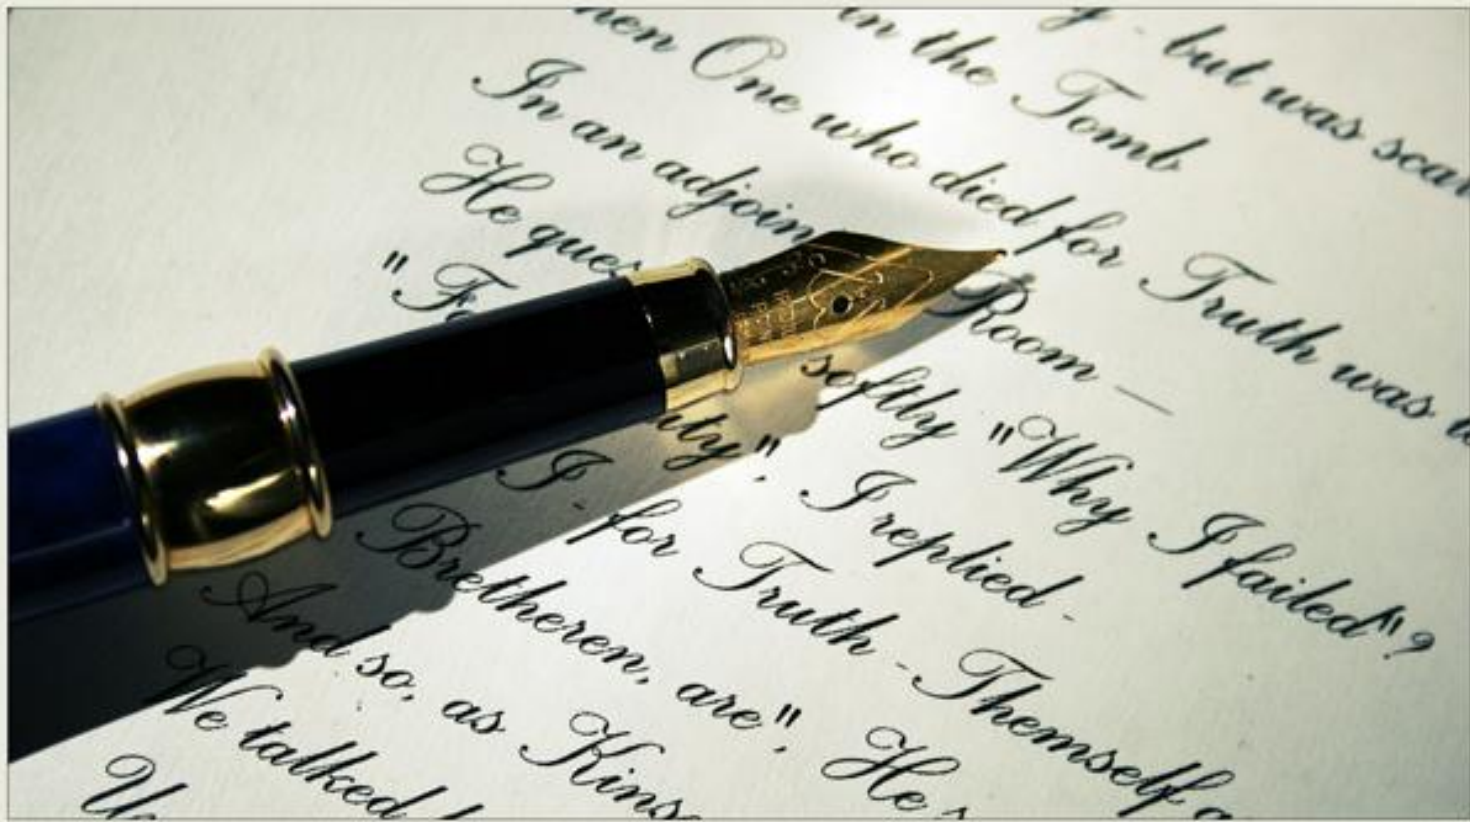 - but was scar
in the Tomb
hen One who died for Truth was
In an adjoin Room —
He ques softly "Why I failed"?
"Fo uty", I replied -
I - for Truth - Themself a
Bretheren, are", He s
And so, as Kins
We talked